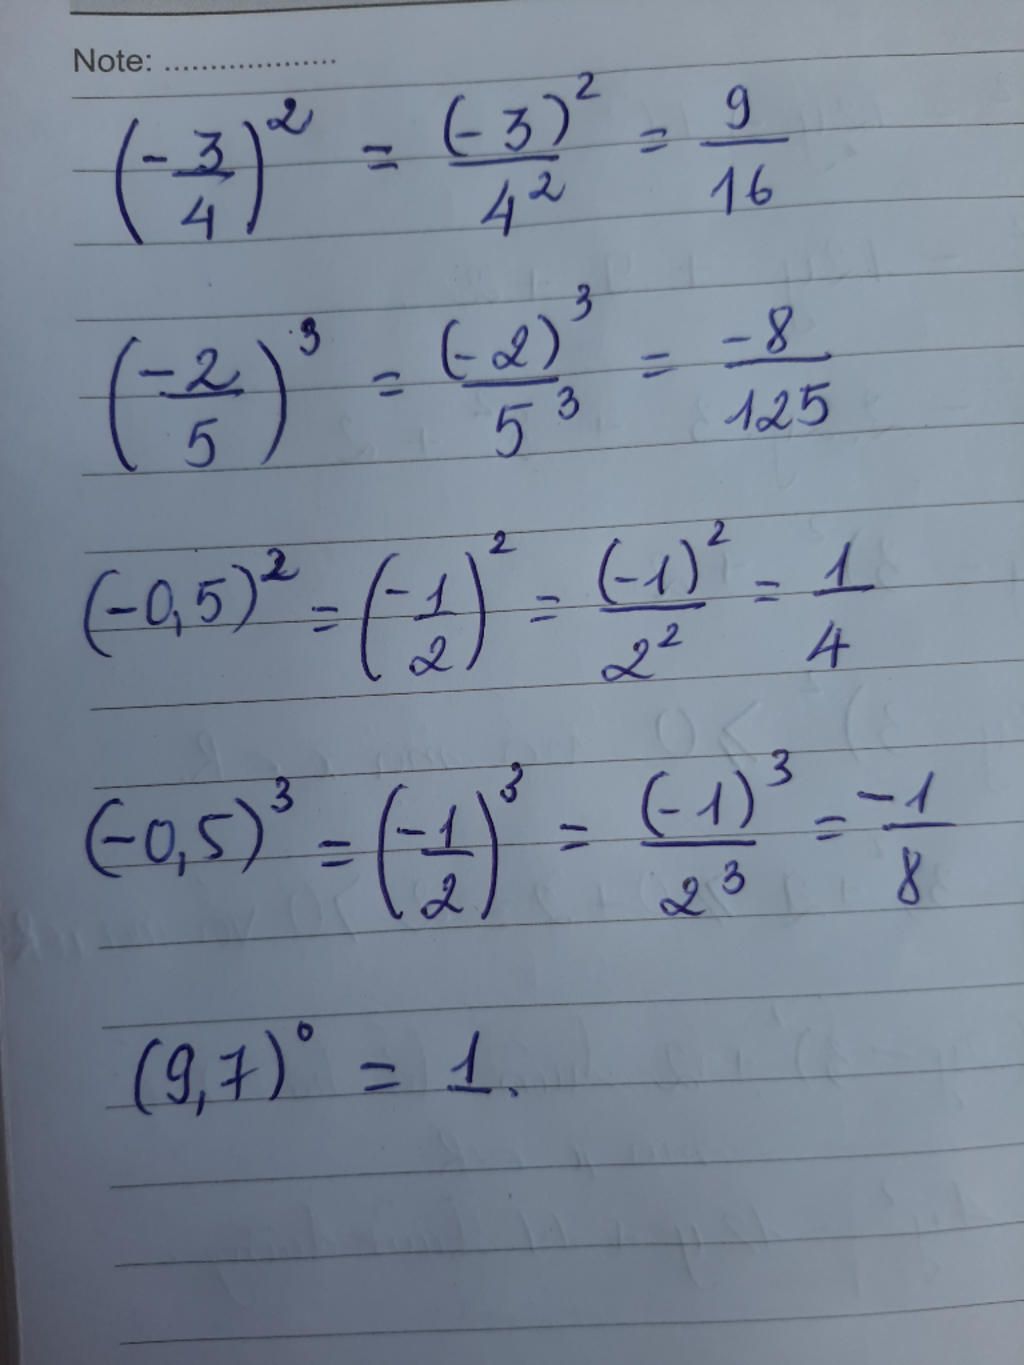 Note: ...................
(-3/4)² = (-3)²/4² = 9/16
(-2/5)³ = (-2)³/5³ = -8/125
(-0,5)² = (-1/2)² = (-1)²/2² = 1/4
(-0,5)³ = (-1/2)³ = (-1)³/2³ = -1/8
(9,7)⁰ = 1.